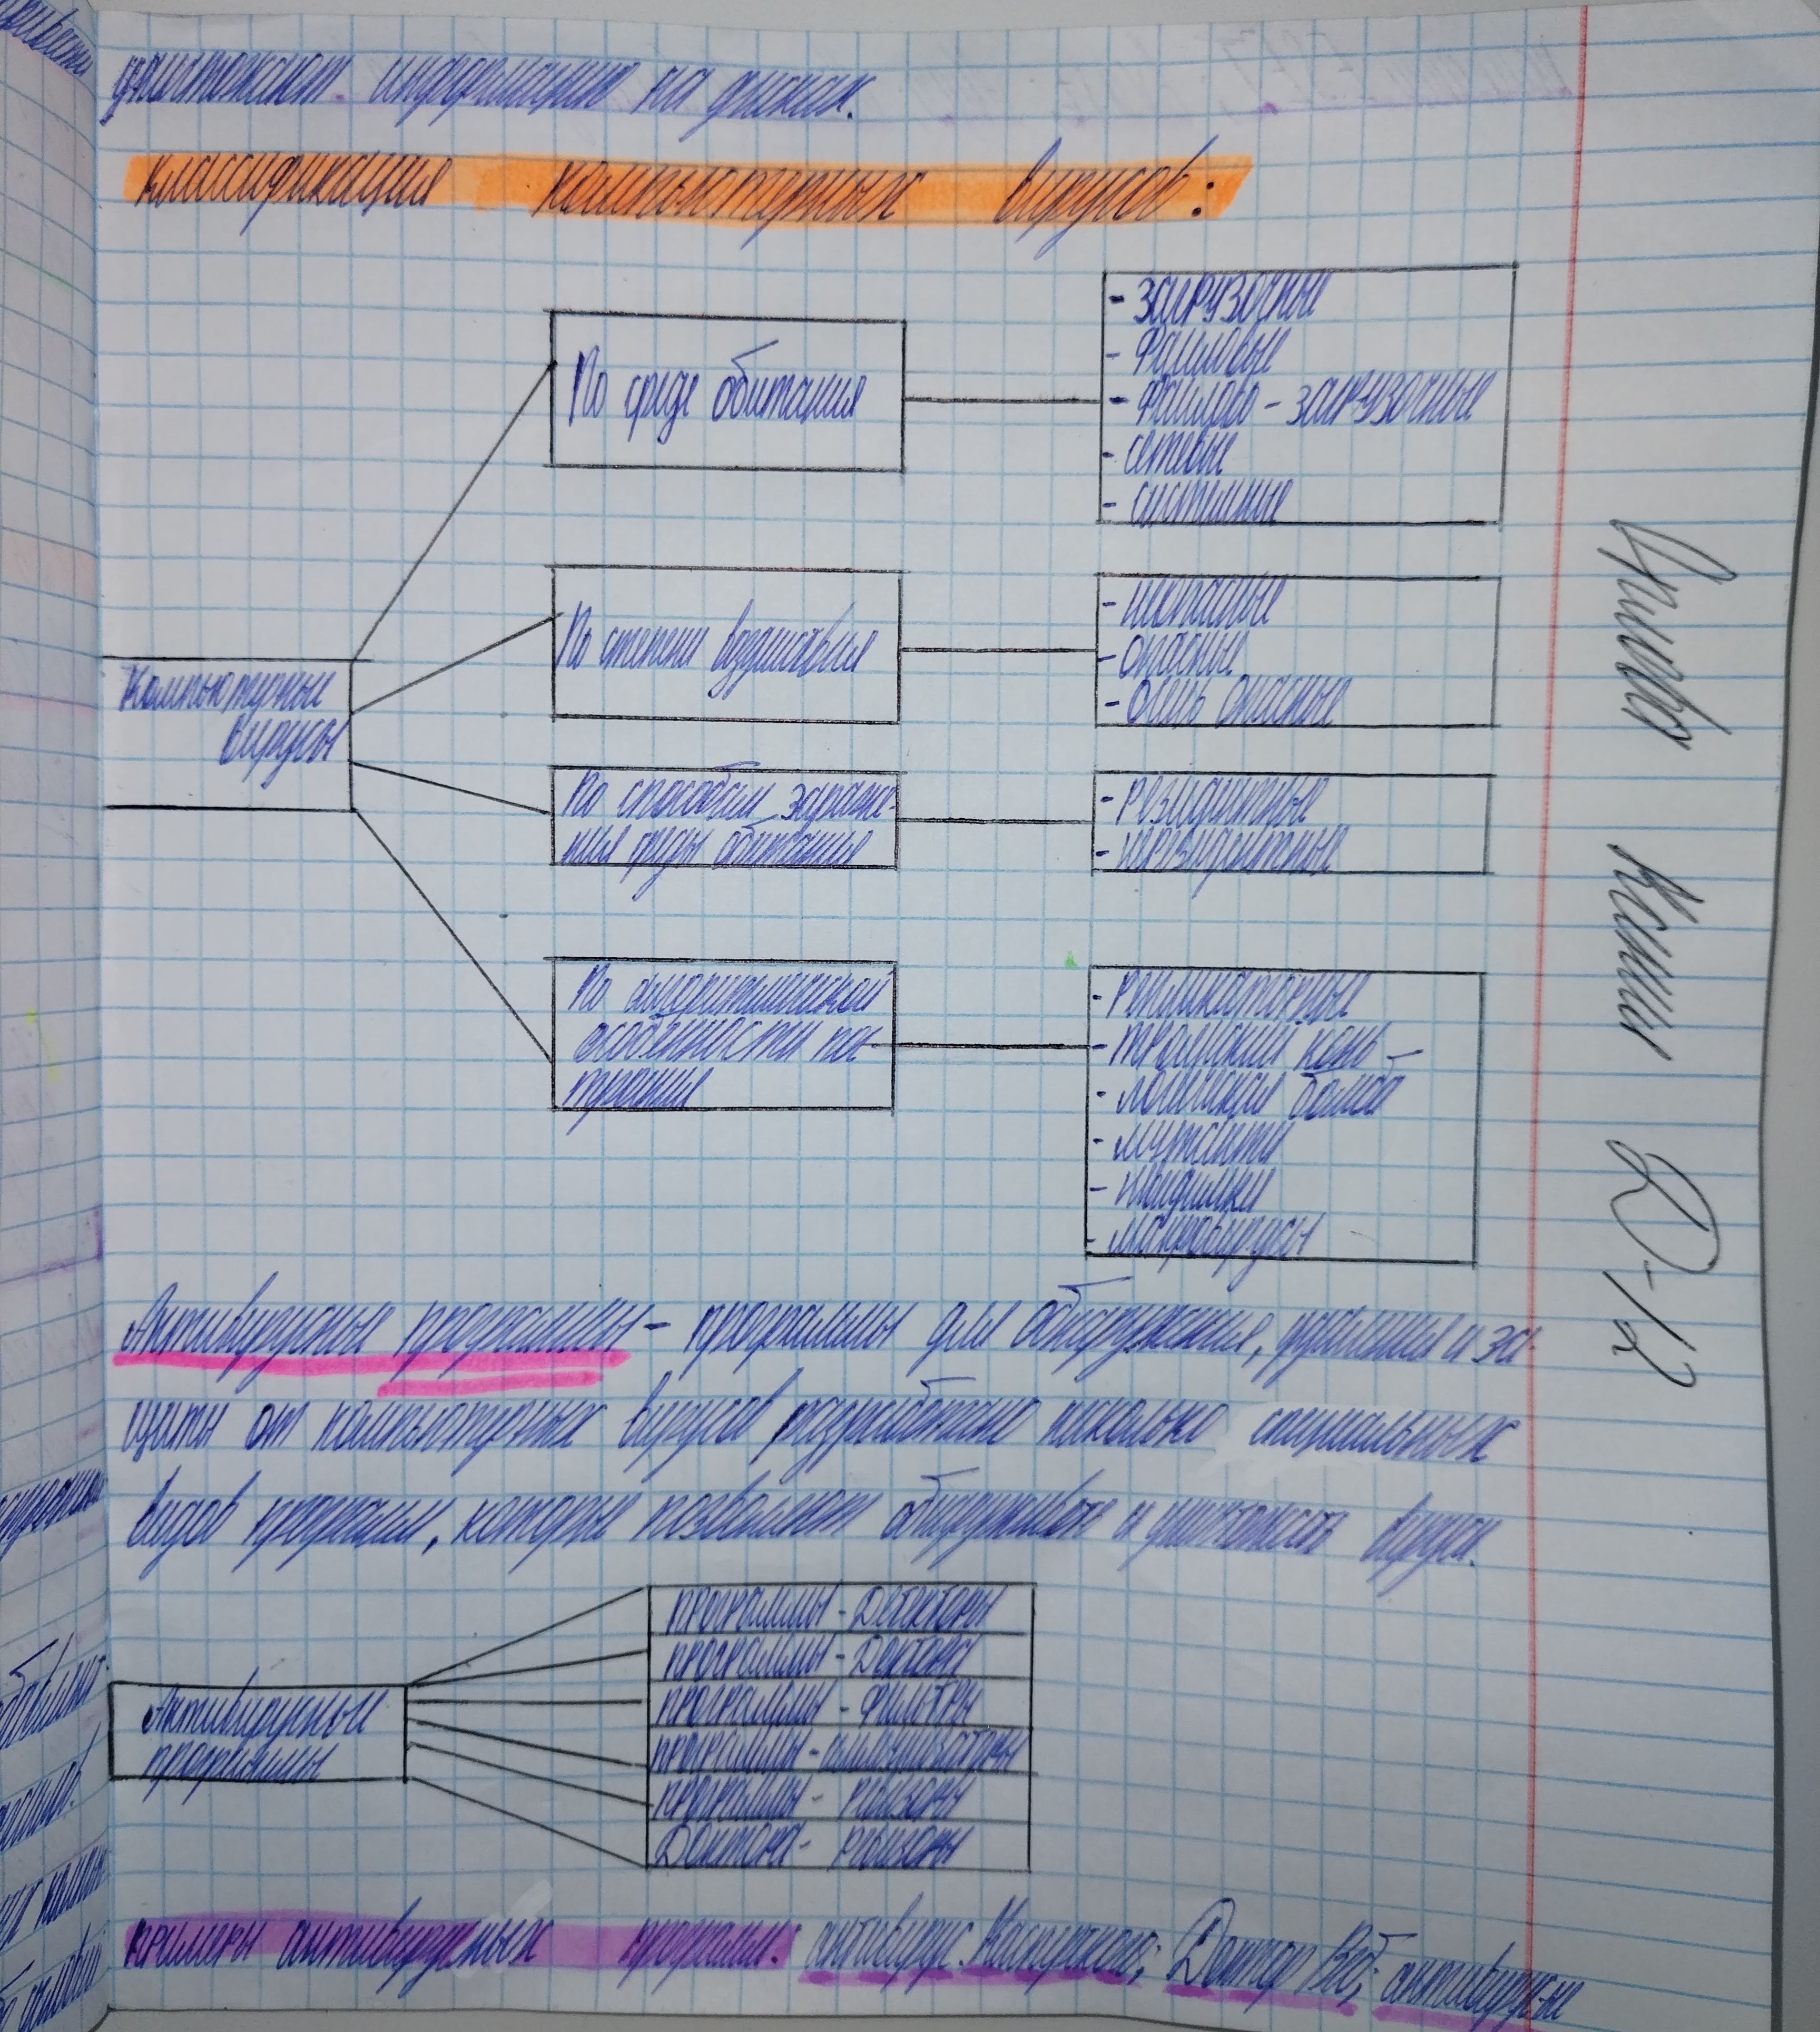 уничтожают информацию на дисках.
Классификация компьютерных вирусов:
Компьютерные
вирусы
По среде обитания
- загрузочные
- файловые
- файлово - загрузочные
- сетевые
- системные
По степени воздействия
- неопасные
- опасные
- очень опасные
По способам зараже-
ния среды обитания
- резидентные
- нерезидентные
По алгоритмической
особенности пос
троения
- репликаторные
- троянский конь -
- логическая бомба
- мутанты
- невидимки
- макровирусы
Антивирусные программы - программы для обнаружения, удаления и за-
щиты от компьютерных вирусов разработано несколько специальных
видов программ, которые позволяют обнаруживать и уничтожать вирусы.
Антивирусные
программы
программы - Детекторы
программы - Доктора
программы - Фильтры
программы - иммунизаторы
программы - ревизоры
Доктора - ревизоры
примеры антивирусных программ: антивирус Касперского; Доктор Веб; антивирусные
Д-12